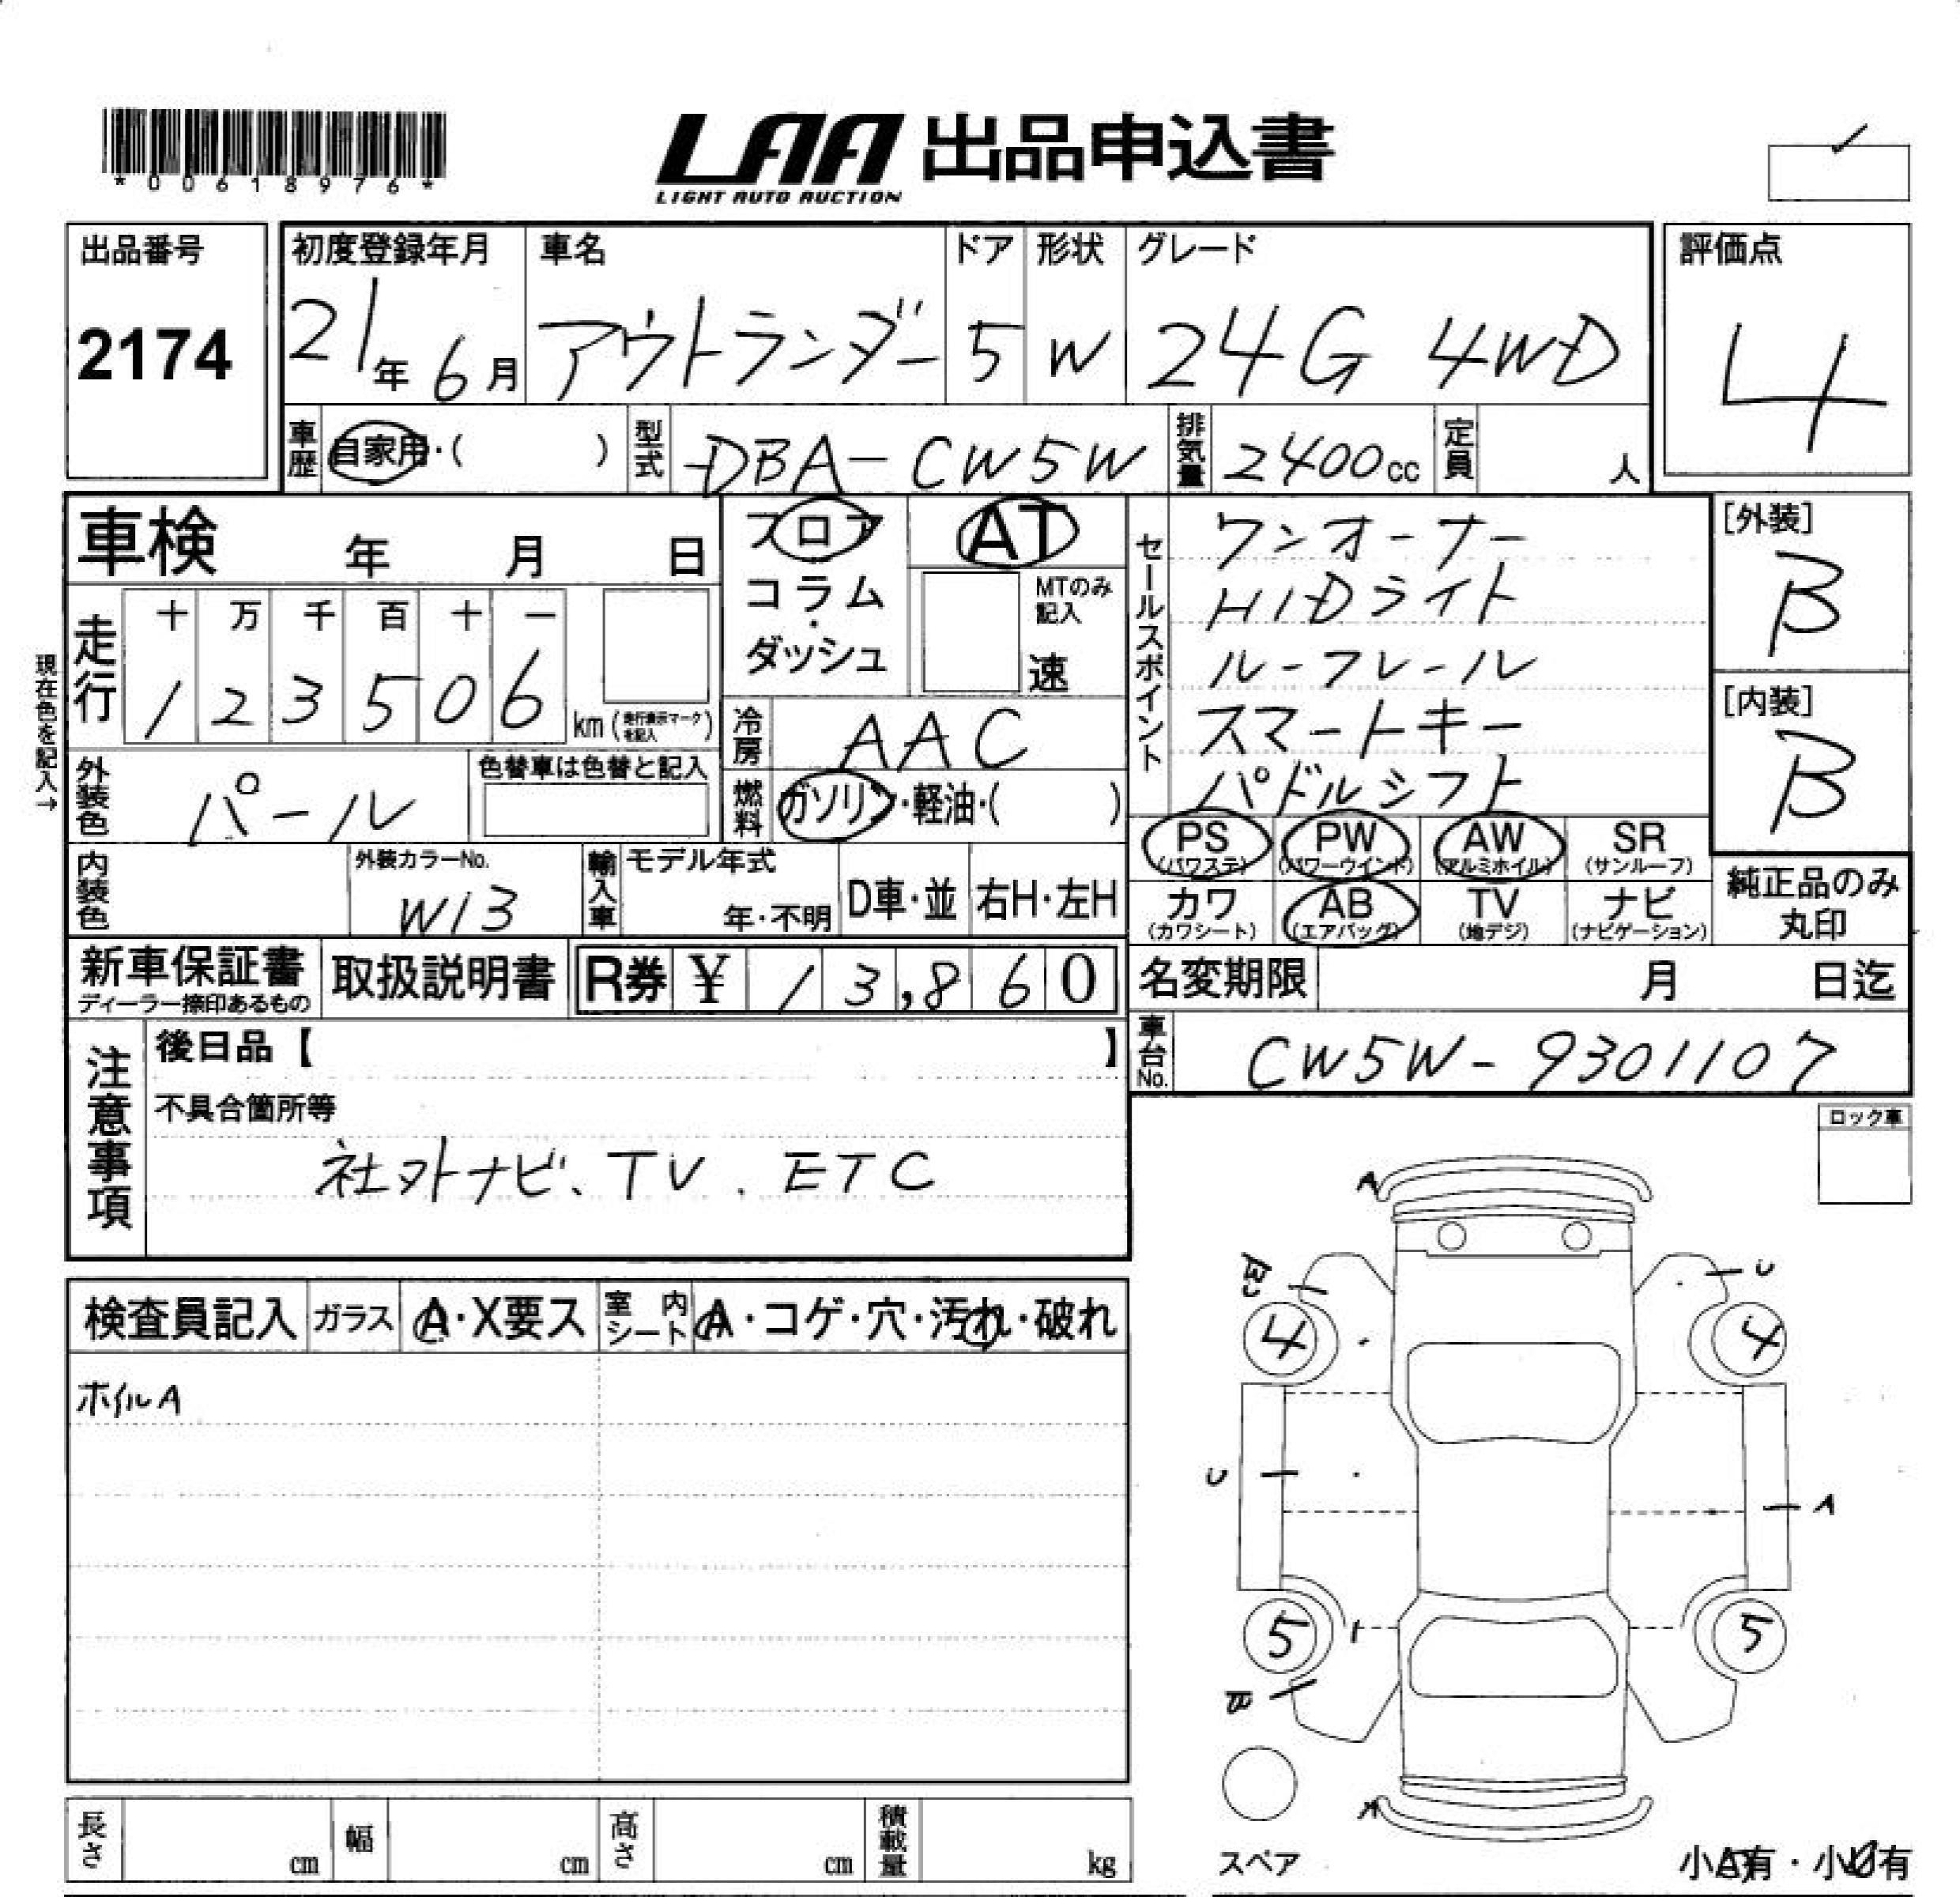 *00618976*
LAA 出品申込書
LIGHT AUTO AUCTION
出品番号
2174
初度登録年月
21年 6月
車名
アウトランダー
ドア
5
形状
W
グレード
24G 4WD
評価点
4
車歴 自家用・( )
型式 DBA-CW5W
排気量 2400cc
定員 人
車検 年 月 日
フロア
コラム
・
ダッシュ
AT
MTのみ記入
速
走行
十 万 千 百 十 一
1 2 3 5 0 6 km (走行表示マークを記入)
現在色を記入→
冷房 AAC
外装色 パール
色替車は色替と記入
燃料 ガソリン・軽油・( )
内装色
外装カラーNo.
W13
輸入車 モデル年式
年・不明
D車・並 右H・左H
セールスポイント
ワンオーナー
HIDライト
ルーフレール
スマートキー
パドルシフト
[外装]
B
[内装]
B
PS (パワステ) PW (パワーウインド) AW (アルミホイル) SR (サンルーフ)
カワ (カワシート) AB (エアバッグ) TV (地デジ) ナビ (ナビゲーション)
純正品のみ
丸印
新車保証書
ディーラー捺印あるもの
取扱説明書
R券 ¥ 13,860
名変期限 月 日迄
車台No. CW5W-9301107
注意事項
後日品【 】
不具合箇所等
社外ナビ、TV . ETC
ロック車
検査員記入 ガラス A・X要ス 室内シート A・コゲ・穴・汚れ・破れ
ホイルA
A
U
4 4
U
A
5 5
A
スペア
長さ cm 幅 cm 高さ cm 積載量 kg
小A有・小U有